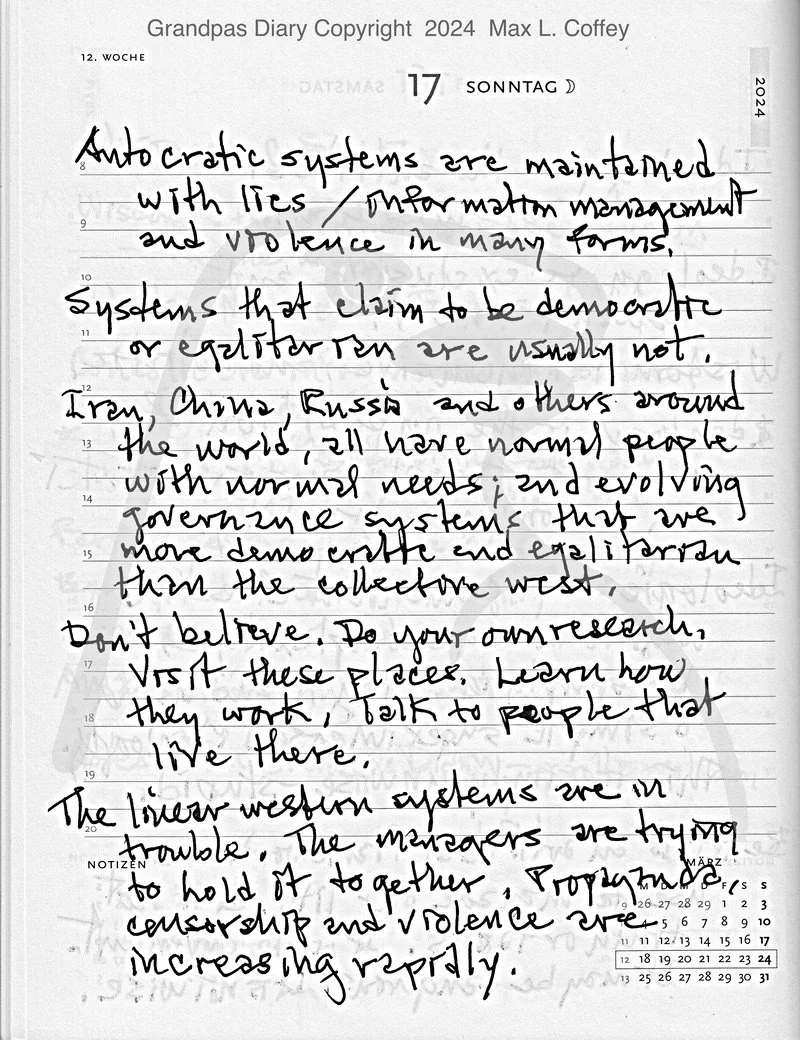 Grandpas Diary Copyright 2024 Max L. Coffey
12. WOCHE
17 SONNTAG
2024
Autocratic systems are maintained
with lies / information management
and violence in many forms.
Systems that claim to be democratic
or egalitarian are usually not.
Iran, China, Russia and others around
the world, all have normal people
with normal needs; and evolving
governance systems that are
more democratic and egalitarian
than the collective west.
Don't believe. Do your own research.
Visit these places. Learn how
they work, Talk to people that
live there.
The linear western systems are in
trouble. The managers are trying
to hold it together. Propaganda,
censorship and violence are
increasing rapidly.
8
9
10
11
12
13
14
15
16
17
18
19
20
NOTIZEN
MÄRZ
M D M D F S S
9 26 27 28 29 1 2 3
4 5 6 7 8 9 10
11 11 12 13 14 15 16 17
12 18 19 20 21 22 23 24
13 25 26 27 28 29 30 31